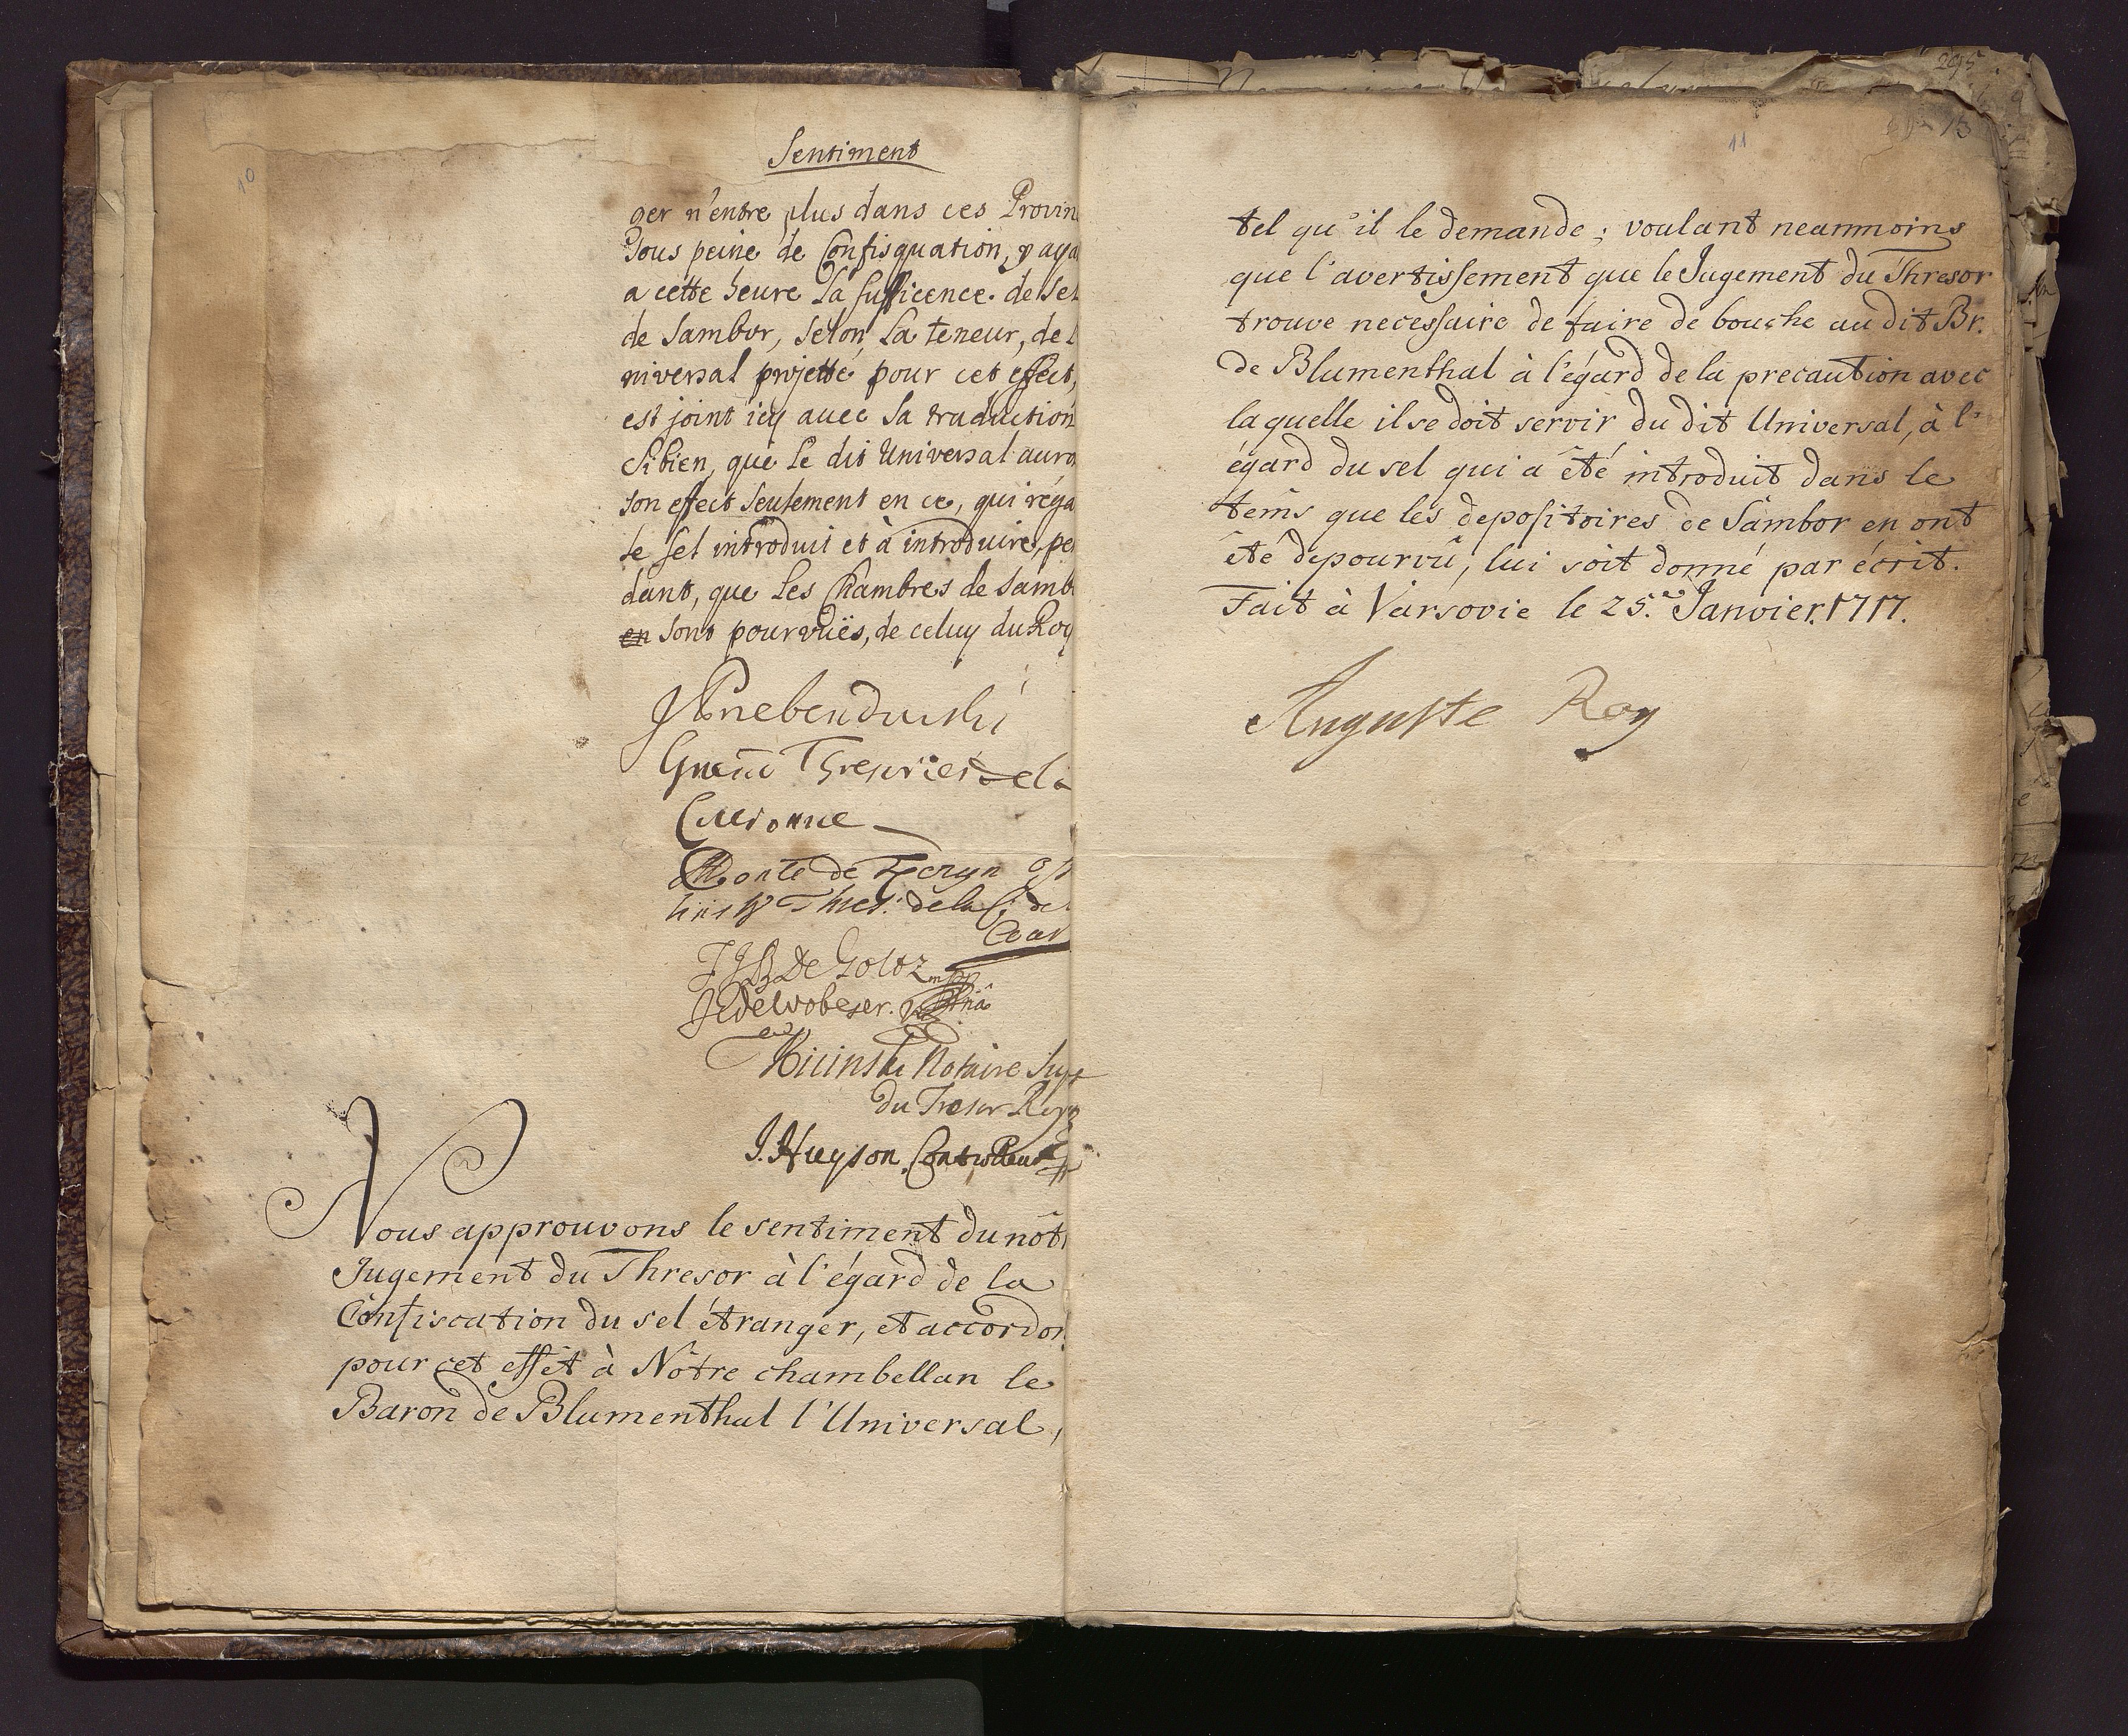 10
Sentiment
ger n'entre plus dans ces Provin
sous peine de Confisquation, y aya
a cette heure la sufficence de sel
de Sambor, selon la teneur, de l
niversal projetté pour cet effect,
est joint icy avec la traduction
Si bien, que le dit Universal aura
son effect seulement en ce, qui rega
le sel introduit et à introduire, pe
dant, que les Chambres de Samb
en sont pourvuës, de celuy du Roy
JPrebendowski
Grand Thresorier de la
Couronne
de la C: de
Cour
De Goltz
de Wobeser.
Kicinski Notaire
du Tresor Roy
J. Huyson. Controlleur
Nous approuvons le sentiment du nôt
Jugement du Thresor à l'égard de la
Confiscation du sel étranger, et accordon
pour cet effét à Nôtre chambellan le
Baron de Blumenthal l'Universal,
295
11
tel qu'il le demande; voulant neanmoins
que l'avertissement que le Jugement du Thresor
trouve necessaire de faire de bouche au dit Br.
de Blumenthal à l'égard de la precaution avec
laquelle il se doit servir du dit Universal, à l'
égard du sel qui a été introduit dans le
tems que les depositoires de Sambor en ont
été depourvû, lui soit donné par écrit.
Fait à Varsovie le 25.e Janvier. 1717.
Auguste Roy